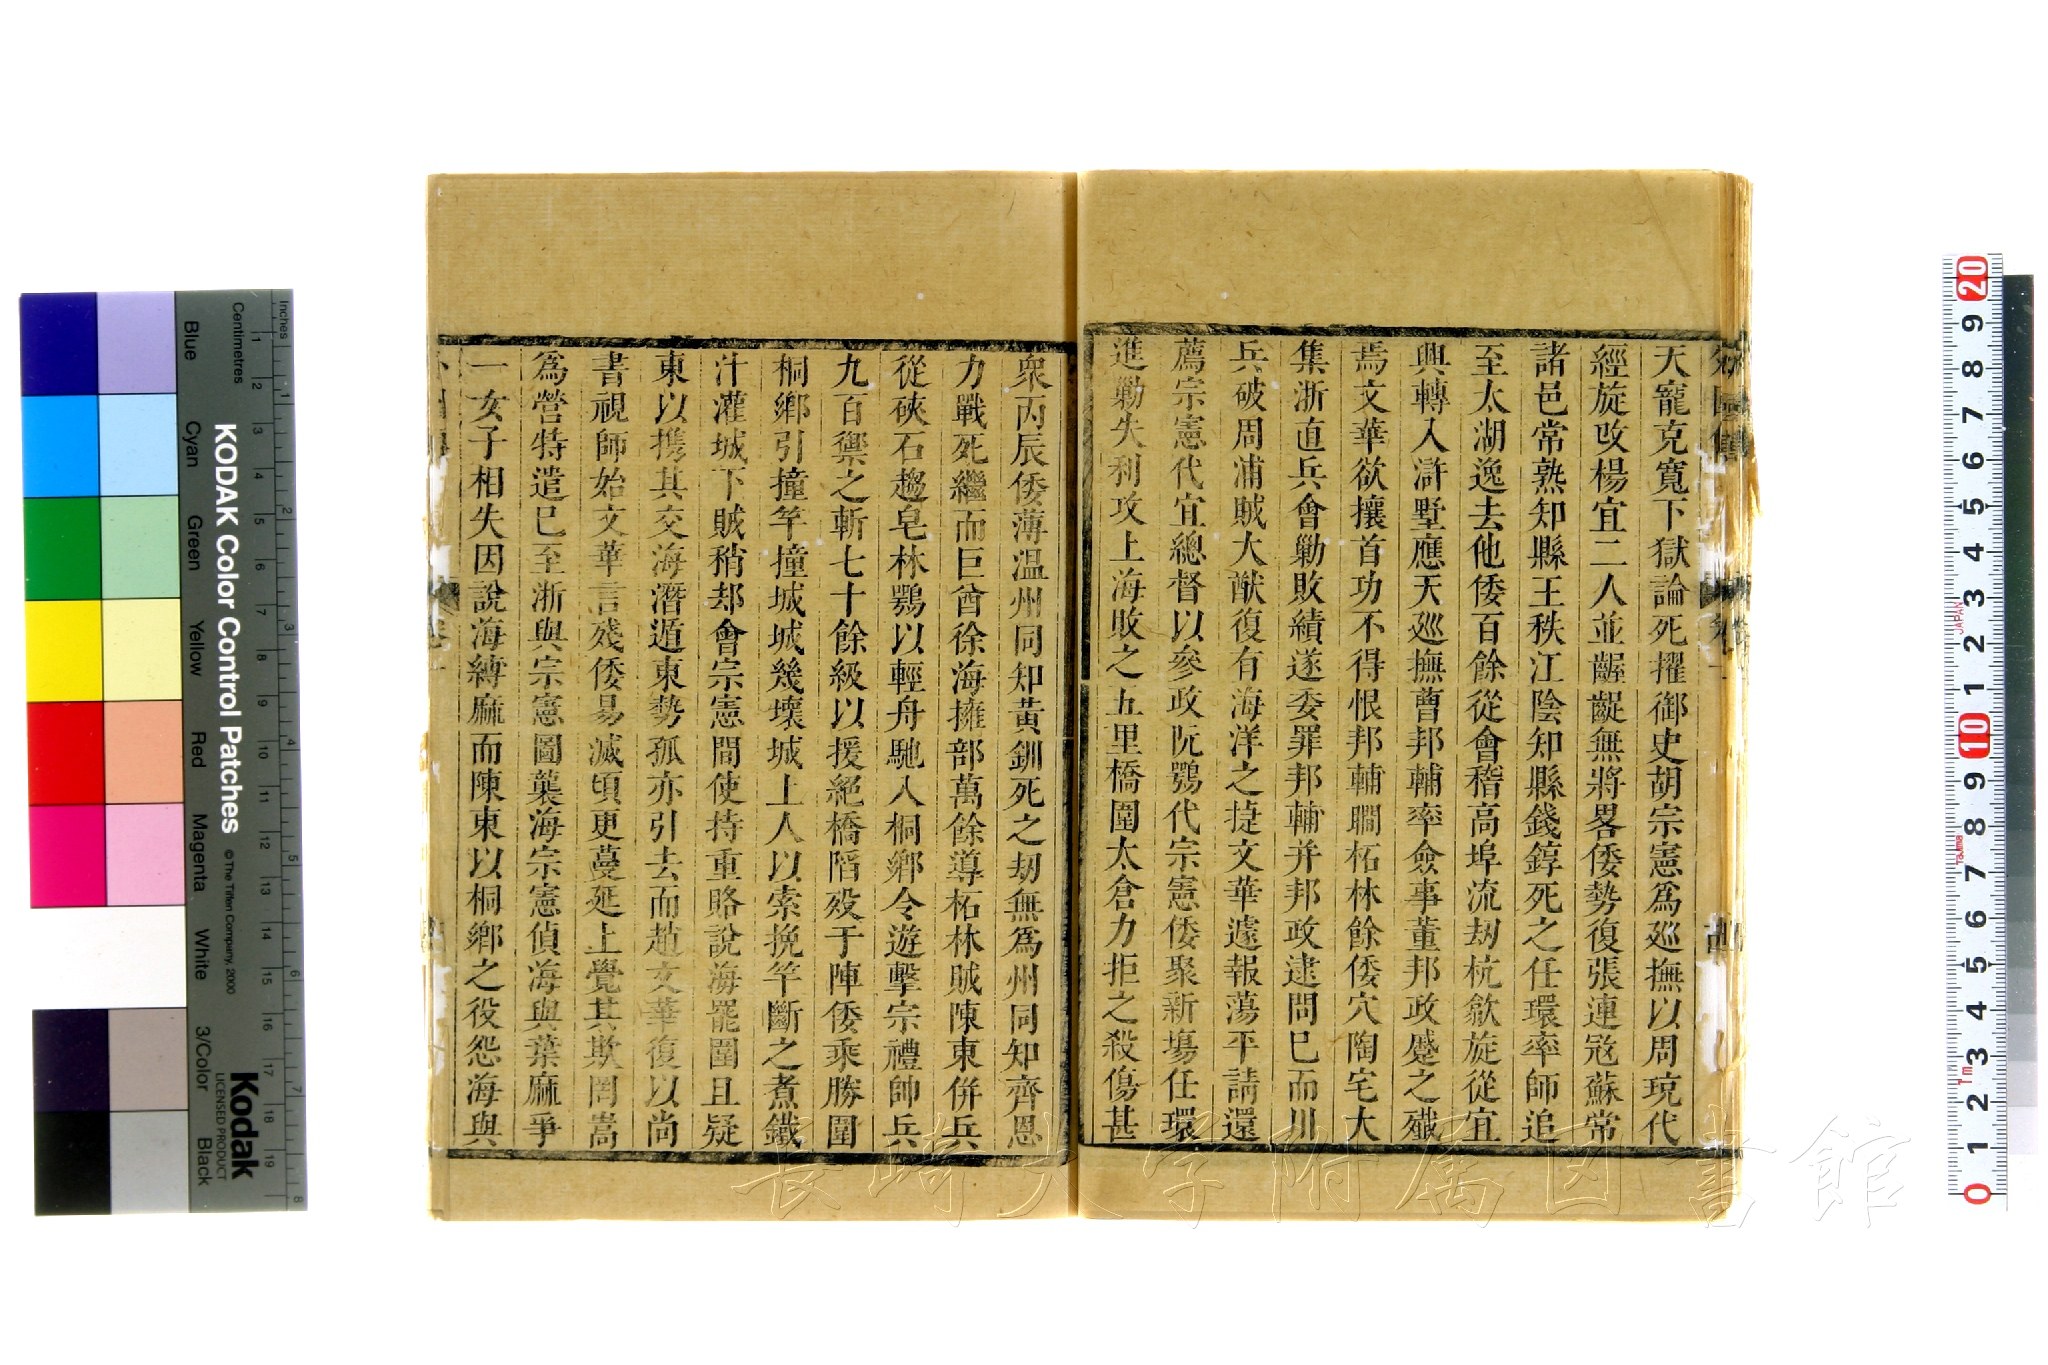 天寵克寬下獄論死擢御史胡宗憲爲巡撫以周珫代
經旋改楊宜二人並齷齪無將畧倭勢復張連冦蘇常
諸邑常熟知縣王秩江陰知縣錢錞死之任環率師追
至太湖逸去他倭百餘從會稽高埠流刼杭歙旋從宜
興轉入滸墅應天巡撫曹邦輔率僉事董邦政蹙之殲
焉文華欲攘首功不得恨邦輔瞷柘林餘倭穴陶宅大
集浙直兵會勦敗績遂委罪邦輔并邦政逮問巳而川
兵破周浦賊大猷復有海洋之㨗文華遽報蕩平請還
薦宗憲代宜總督以參政阮鶚代宗憲倭聚新塲任環
進勦失利攻上海敗之五里橋圍太倉力拒之殺傷甚
衆丙辰倭薄温州同知黃釧死之刼無爲州同知齊恩
力戰死繼而巨酋徐海擁部萬餘導柘林賊陳東併兵
從硤石趨皂林鶚以輕舟馳入桐鄉令遊擊宗禮帥兵
九百禦之斬七十餘級以援絕橋䧟歿于陣倭乘勝圍
桐鄉引撞竿撞城城幾壞城上人以索挽竿斷之煮鐵
汁灌城下賊稍却會宗憲間使持重賂說海罷圍且疑
東以攜其交海潛遁東勢孤亦引去而趙文華復以尚
書視師始文華言殘倭易滅頃更蔓延上覺其欺罔嵩
爲營特遣巳至浙與宗憲圖襲海宗憲偵海與葉麻爭
一女子相失因說海縛麻而陳東以桐鄉之役怨海與
KODAK Color Control Patches
© The Tiffen Company, 2000
Kodak
LICENSED PRODUCT
Inches
Centimetres
Blue
Cyan
Green
Yellow
Red
Magenta
White
3/Color
Black
JAPAN
Tajima
1m
長崎大学附属図書館